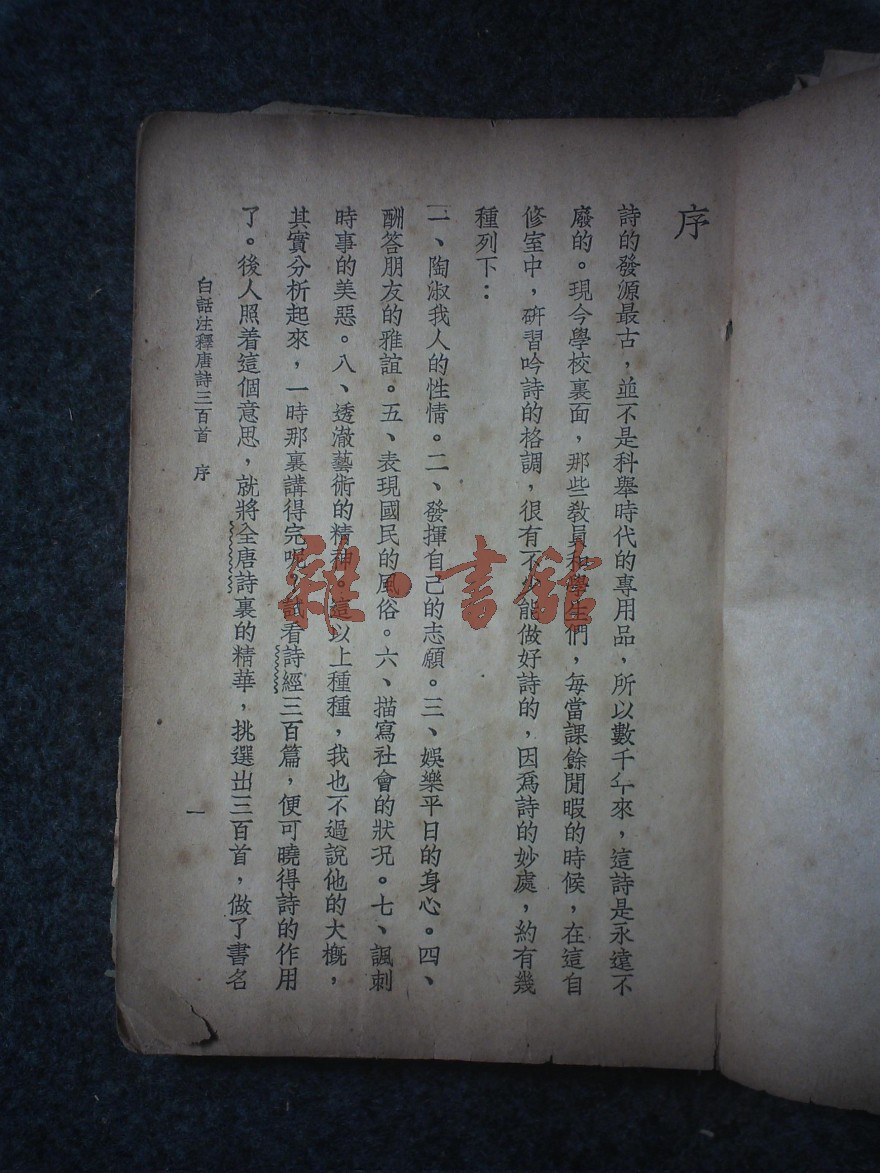 序
詩的發源最古，並不是科舉時代的專用品，所以數千年來，這詩是永遠不
廢的。現今學校裏面，那些敎員和學生們，每當課餘閒暇的時候，在這自
修室中，硏習吟詩的格調，很有不少能做好詩的，因爲詩的妙處，約有幾
種列下：
一、陶淑我人的性情。二、發揮自己的志願。三、娛樂平日的身心。四、
酬答朋友的雅誼。五、表現國民的風俗。六、描寫社會的狀況。七、諷刺
時事的美惡。八、透澈藝術的精神。這以上種種，我也不過說他的大槪，
其實分析起來，一時那裏講得完呢，試看詩經三百篇，便可曉得詩的作用
了。後人照着這個意思，就將全唐詩裏的精華，挑選出三百首，做了書名
白話注釋唐詩三百首 序
一
雜·書館